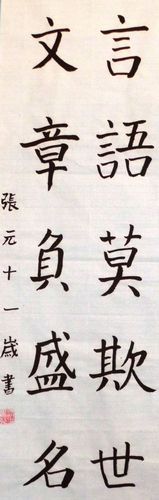 言語莫欺世
文章負盛名
張元十一歲書